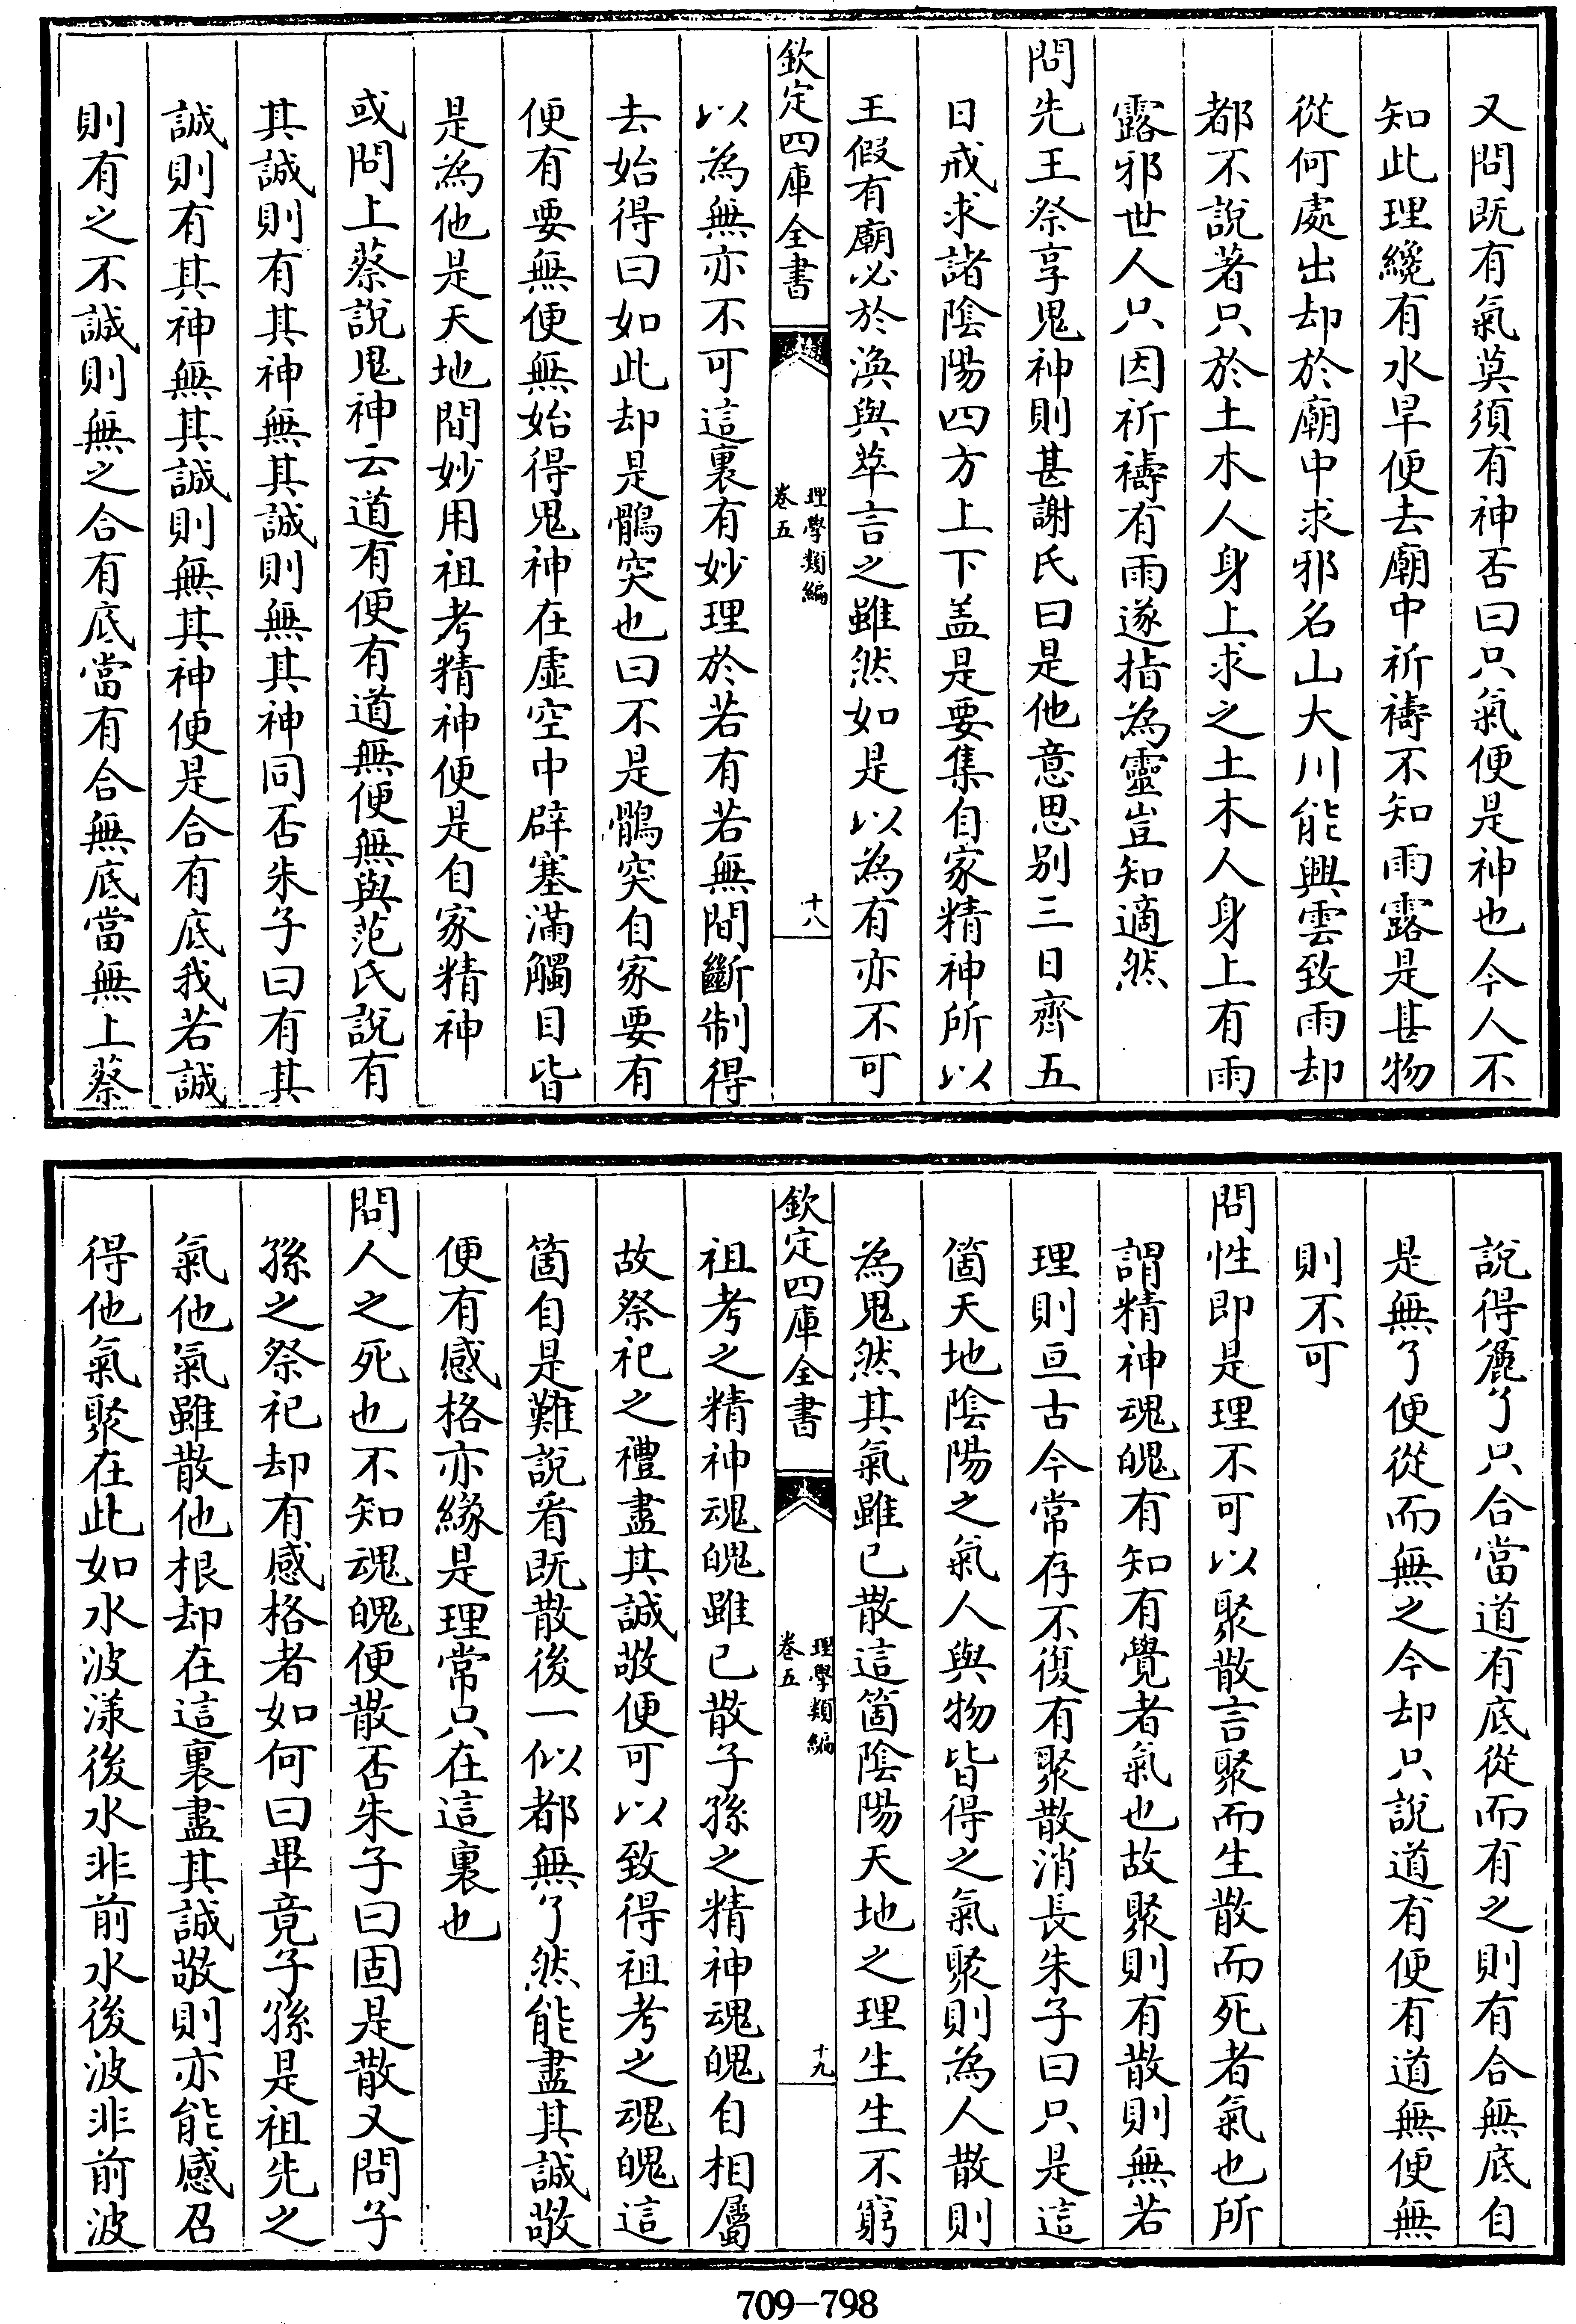 又問既有氣莫須有神否曰只氣便是神也今人不
知此理纔有水旱便去廟中祈禱不知雨露是甚物
從何處出却於廟中求邪名山大川能興雲致雨却
都不說著只於土木人身上求之土木人身上有雨
露邪世人只因祈禱有雨遂指為靈豈知適然
問先王祭享鬼神則甚謝氏曰是他意思别三日齊五
日戒求諸陰陽四方上下盖是要集自家精神所以
王假有廟必於渙與萃言之雖然如是以為有亦不可
欽定四庫全書
理學類編
卷五
十八
以為無亦不可這裏有妙理於若有若無間斷制得
去始得曰如此却是鶻突也曰不是鶻突自家要有
便有要無便無始得鬼神在虛空中辟塞滿觸目皆
是為他是天地間妙用祖考精神便是自家精神
或問上蔡說鬼神云道有便有道無便無與范氏說有
其誠則有其神無其誠則無其神同否朱子曰有其
誠則有其神無其誠則無其神便是合有底我若誠
則有之不誠則無之合有底當有合無底當無上蔡
說得麄了只合當道有底從而有之則有合無底自
是無了便從而無之今却只說道有便有道無便無
則不可
問性即是理不可以聚散言聚而生散而死者氣也所
謂精神魂魄有知有覺者氣也故聚則有散則無若
理則亘古今常存不復有聚散消長朱子曰只是這
箇天地陰陽之氣人與物皆得之氣聚則為人散則
為鬼然其氣雖已散這箇陰陽天地之理生生不窮
欽定四庫全書
理學類編
卷五
十九
祖考之精神魂魄雖已散子孫之精神魂魄自相屬
故祭祀之禮盡其誠敬便可以致得祖考之魂魄這
箇自是難說看既散後一似都無了然能盡其誠敬
便有感格亦緣是理常只在這裏也
問人之死也不知魂魄便散否朱子曰固是散又問子
孫之祭祀却有感格者如何曰畢竟子孫是祖先之
氣他氣雖散他根却在這裏盡其誠敬則亦能感召
得他氣聚在此如水波漾後水非前水後波非前波
709-798